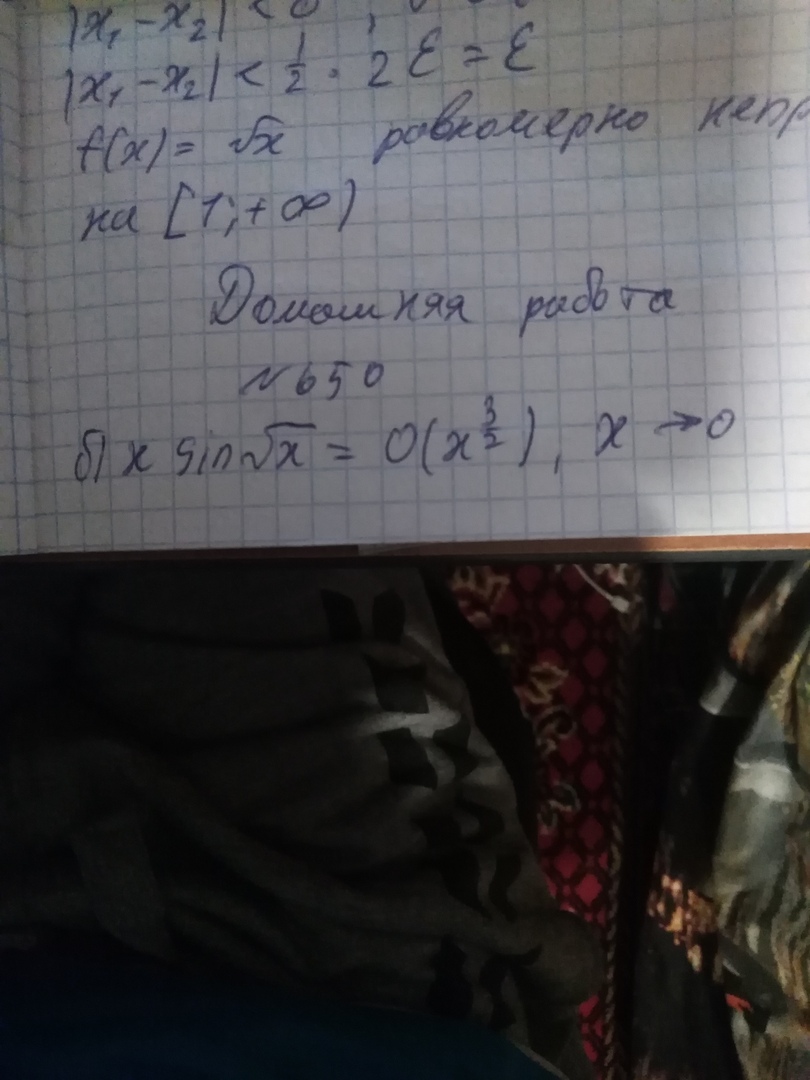 |x₁ - x₂| <
|x₁ - x₂| < 1/2 · 2 ε = ε
f(x) = √x равномерно непр
на [1; +∞)
Домашняя работа
№650
б) x sin√x = O(x^{3/2}), x → 0